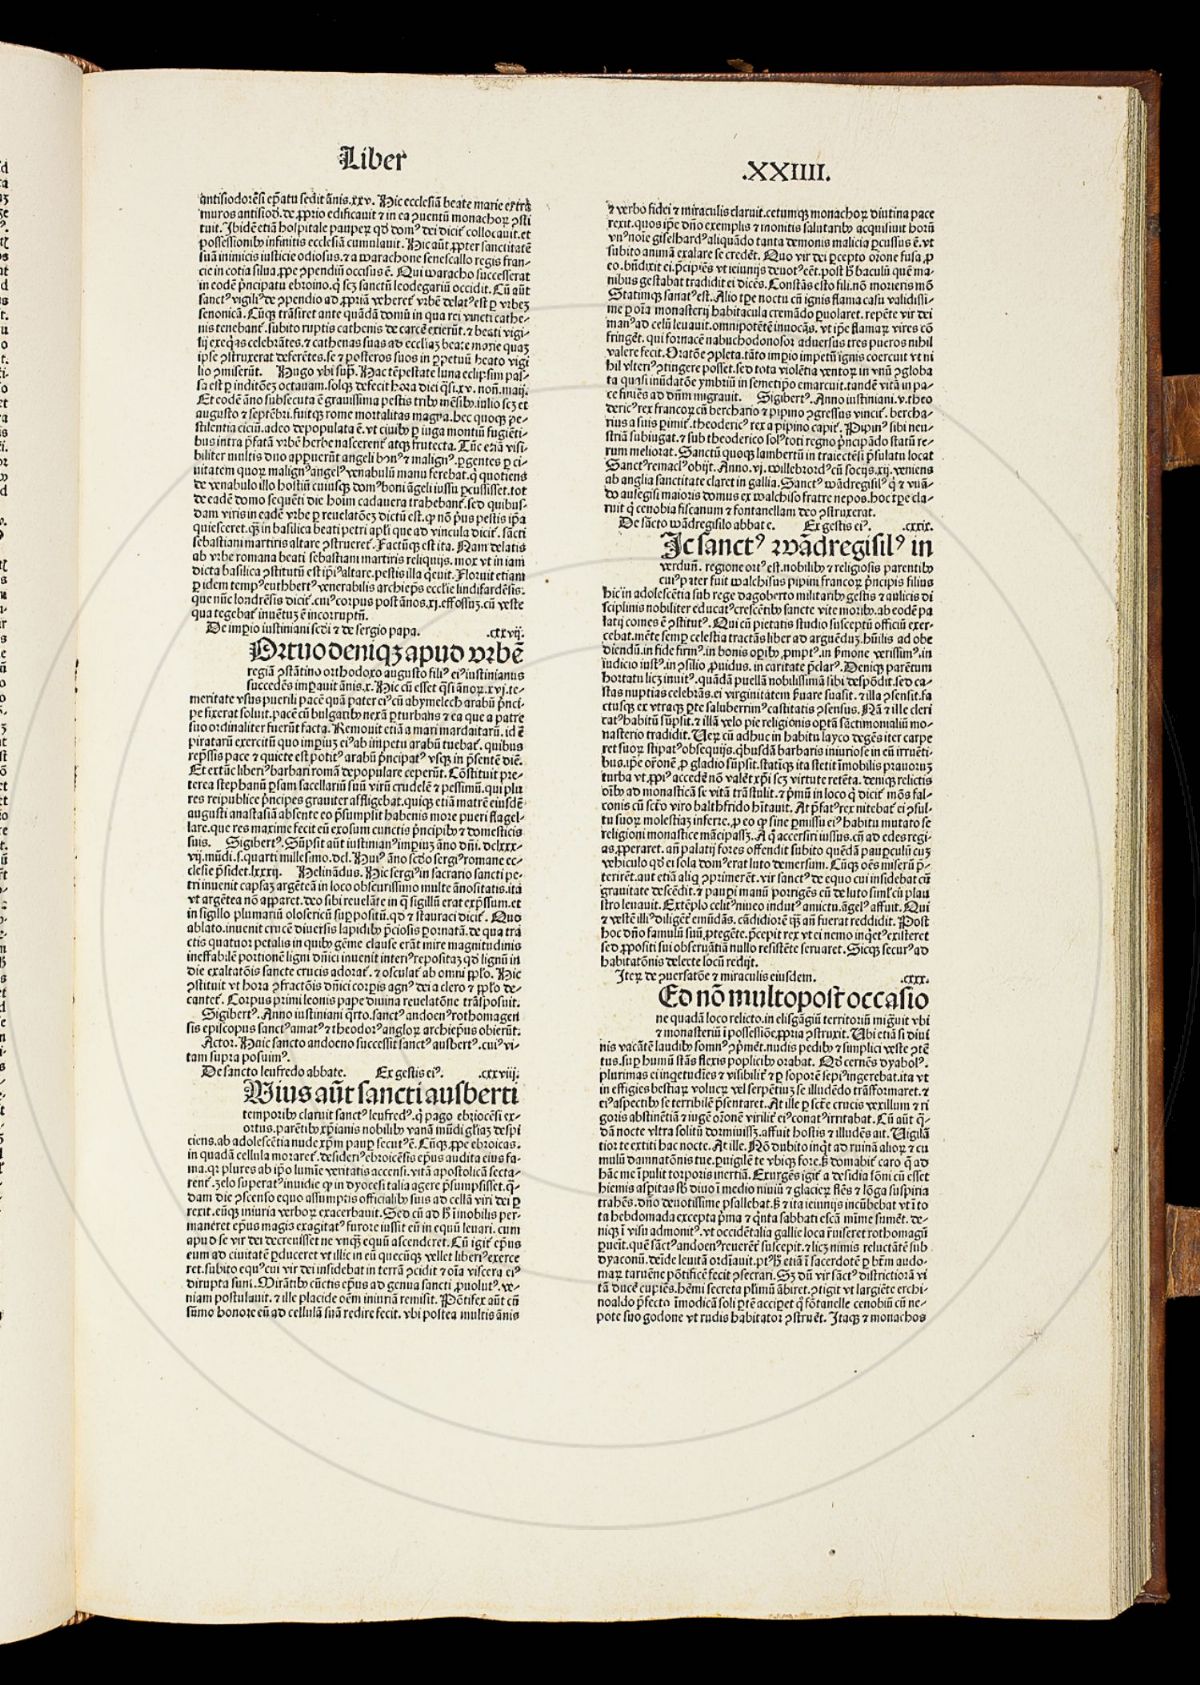 Liber
.XXIIII.
antisiodorēsi ep̄atu sedit ānis.xxv. Hic ecclesiā beate marie extra
muros antisiod.de ꝓprio edificauit ⁊ in ea ꝯuentū monachoꝝ ꝯsti
tuit. Ibidē etiā hospitale pauperꝝ qd̄ domꝰ dei dicit̄ collocauit.et
possessionibꝰ infinitis ecclesiā cumulauit. Hic aūt ꝓpter sanctitatē
suā inimicis iusticie odiosus.⁊ a warachone senescallo regis fran-
cie in cotia silua.ꝓpe ꝯpendiū occisus ē. Qui waracho successerat
in eodē pⁱncipatu ebroino.q̄ scꝫ sanctū leodegariū occidit. Cū aūt
sanctꝰ vigiliꝰ de ꝯpendio ad ꝓpriā veheret̄ vrbē delatꝰ est ꝑ vrbeꝫ
senonicā. Cūqꝫ trāsiret ante quādā domū in qua rei vincti cathe-
nis tenebant̄.subito ruptis cathenis de carcē exierūt.⁊ beati vigi-
lij exeq̄as celebrātes.⁊ cathenas suas ad ecclias beate marie quaꝫ
ipse ꝯstruxerat deferētes.se ⁊ posteros suos in ꝑpetuū beato vigi
lio ꝯmiserūt. Hugo vbi supͣ. Hac tēpestate luna eclipsim pas-
sa est ꝑ inditōeꝫ octauam.solqꝫ defecit hora diei qͣsi.xv. non.maij.
Et eodē āno subsecuta ē grauissima pestis tribꝰ mēsibꝰ.iulio scꝫ et
augusto ⁊ septēbri.fuitqꝫ rome mortalitas magna.hec quoqꝫ pe-
stilentia ticinū.adeo depopulata ē.vt ciuibꝰ ꝑ iuga montiū fugiēti-
bus intra p̄fatā vrbē herbe nascerent̄ atqꝫ frutecta. Tūc etiā visi-
biliter multis duo apparuerūt angeli bonꝰ ⁊ malignꝰ.ꝑgentes ꝑ ci-
uitatem quoꝝ malignꝰ angelꝰ venabulū manu ferebat.q̄ quotiens
de venabulo illo hostiū cuiusqꝫ domꝰ boni āgeli iussu ꝑcussisset.tot
de eadē domo sequēti die hoīm cadauera trahebant̄.sed quibus-
dam viris in eadē vrbe ꝑ reuelatōeꝫ dictū est.qͦ nō pⁱus pestis ip̄a
quiesceret.qͣꝫ in basilica beati petri apl̄i que ad vincula dicit̄. sācti
sebastiani martiris altare ꝯstrueret̄. Factūqꝫ est ita. Nam delatis
ab vrbe romana beati sebastiani martiris reliquijs.mox vt in iam
dicta basilica ꝯstitutū est ip̄iꝰ altare.pestis illa q̄euit. Floruit etiam
ꝑ idem tempꝰ cuthbertꝰ venerabilis archiep̄s ecclie lindifardēsis.
que nūc londrēsis dicit̄.cuiꝰ corpus post ānos.xj.effossuꝫ.cū veste
qua tegebat̄ inuētuꝫ ē incorruptū.
De imperio iustiniani scdi ⁊ de sergio papa. .cxxvij.
Ortuo deniqꝫ apud vrbē
regiā ꝯstātino orthodoxo augusto filiꝰ eiꝰ iustinianus
succedēs imꝑauit ānis.x. Hic cū esset qͣsi ānoꝝ.xvj.te-
meritate vsus puerili pacē quā pater eiꝰ cū abymelech arabū pⁱnci-
pe fixerat soluit.pacē cū bulgaribꝰ nexā ꝑturbans ⁊ ea que a patre
suo ordinaliter fuerūt facta. Remouit etiā a mari mardaitarū.id ē
piratarū exercitū quo imꝑiuꝫ eiꝰ ab impetu arabū tuebat̄. quibus
rep̄ssis pace ⁊ quiete est potitꝰ arabū pⁱncipatꝰ vsqꝫ in p̄sentē diē.
Et extūc liberiꝰ barbari romā depopulare ceperūt. Cōstituit pre-
terea stephanū ꝑsam sacellariū suū virū crudelē ⁊ pessimū.qui plu
res reipublice pⁱncipes grauiter affligebat.quiqꝫ etiā matrē eiusdē
augusti anastasiā absente eo p̄sumpsit habenis more pueri flagel-
lare.que res maxime fecit eū exosum cunctis pⁱncipibꝰ ⁊ domesticis
suis. Sigibertꝰ. Sūpsit aūt iustinianꝰ imꝑiuꝫ āno dn̄i.dclxxx-
vij.mūdi.s.quarti millesimo.dcl. Huiꝰ āno scd̄o sergiꝰ romane ec-
clesie p̄sidet.lxxxij. Helinādus. Hic sergiꝰ in sacrario sancti pe-
tri inuenit capsaꝫ argēteā in loco obscurissimo multe ānositatis.ita
vt argētea nō apꝑaret.deo sibi reuelāte in q̄ sigillū erat exp̄ssum.et
in sigillo plumariū olosericū suppositū.qd̄ ⁊ stauraci dicit̄. Quo
ablato.inuenit crucē diuersis lapidibꝰ pⁱciosis ꝑornatā.de qua tra
ctis quatuor petalis in quibꝰ gēme clause erāt mire magnitudinis
ineffabilē portionē ligni dn̄ici inuenit interiꝰ repositaꝫ qd̄ lignū in
die exaltatōnis sancte crucis adorat̄. ⁊ osculat̄ ab omni pp̄lo. Hic
ꝯstituit vt hora ꝯfractōis dn̄ici corꝑis agnꝰ dei a clero ⁊ pp̄lo de-
cantet̄. Corpus primi leonis pape diuina reuelatōne trāsposuit.
Sigibertꝰ. Anno iustiniani qͣrto.sanctꝰ andoenꝰ rothomagen
sis episcopus sanctꝰ amatꝰ ⁊ theodorꝰ angloꝝ archiep̄us obierūt.
Actor. Huic sancto andoeno successit sanctꝰ ausbertꝰ.cuiꝰ vi-
tam supra posuimꝰ.
De sancto leufredo abbate. Ex gestis eiꝰ. .cxxviij.
Uius aūt sancti ausberti
temporibꝰ claruit sanctꝰ leufredꝰ.q̄ pago ebriocēsi ex-
ortus.parētibꝰ xp̄ianis nobilibꝰ vanā mūdi gliaꝫ despi
ciens.ab adolescētia nude xp̄m pauꝑ secutꝰē. Cūqꝫ.ꝓpe ebroicas.
in quadā cellula moraret̄.desideriꝰ ebroicēsis ep̄us audita eius fa-
ma.qꝛ plures ab ip̄o lumīe veritatis accensi.vitā apostolicā secta-
rent̄.zelo superatꝰ inuidie q̄ in dyocesi talia agere p̄sumpsisset.q̄-
dam die ꝯscenso equo assumptis officialibꝰ suis ad cellā viri dei ꝑ
rexit.eūqꝫ iniuria verboꝝ exacerbauit. Sed cū ad hͦ īmobilis per-
maneret ep̄us magis exagitatꝰ furore iussit eū in equū leuari.cum
apud se vir dei decreuisset ne vnqꝫ equū ascenderet. Cū igit̄ ep̄us
eum ad ciuitatē ꝑduceret vt illic in eū quecūqꝫ vellet liberiꝰ exerce
ret.subito equꝰ cui vir dei insidebat in terrā ꝯcidit ⁊ oīa viscera eiꝰ
dirupta sunt. Mirātibꝰ cūctis ep̄us ad genua sancti ꝓuolutꝰ.ve-
niam postulauit.⁊ ille placide oēm iniuriā remisit. Pōtifex aūt cū
sūmo honore eū ad cellulā suā redire fecit.vbi postea multis ānis
⁊ verbo fidei ⁊ miraculis claruit.cetumqꝫ monachoꝝ diutina pace
rexit.quos ip̄e dn̄o exemplis ⁊ monitis salutaribꝰ acquisiuit horū
vnꝰ noīe giselhardꝰ aliquādo tanta demonis malicia ꝑcussus ē.vt
subito animā exalare se credēt. Quo vir dei ꝑcepto orōne fusa ꝓ
eo.bn̄dixit ei.pⁱcipiēs vt ieiunijs deuotꝰ eēt.post hͦ baculū quē ma-
nibus gestabat tradidit ei dicēs. Constās esto fili.nō morieris mō
Statimqꝫ sanatꝰ est. Alio tꝑe noctu cū ignis flama casu validissi-
me ꝑ oīa monasterij habitacula cremādo ꝑuolaret. repēte vir dei
manꝰ ad celū leuauit.omnipotētē inuocās. vt ip̄e flamaꝝ vires cō
fringēt.qui fornacē nabuchodonosor aduersus tres pueros nihil
valere fecit. Oratōe ꝯpleta.tāto impio impetū ignis coercuit vt ni
hil vlteriꝰ ꝯtingere posset.sed tota violētia ventoꝝ in vnū ꝯgloba
ta quasi inūdatōe ymbriū in semetip̄o emarcuit.tandē vitā in pa-
ce finiēs ad dn̄m migrauit. Sigibertꝰ. Anno iustiniani.v.theo
dericꝰ rex francoꝝ cū berchario ⁊ pipino ꝯgressus vincit̄. bercha-
rius a suis pimit̄.theodericꝰ rex a pipino capit̄. Pipinꝰ sibi neu-
striā subiugat.⁊ sub theoderico solꝰ toti regno pⁱncipādo statū re-
rum meliorat. Sanctū quoqꝫ lambertū in traiectēsi p̄sulatu locat
Sanctꝰ remaclꝰ obijt. Anno.vj.willebrordꝰ cū socijs.xij.veniens
ab anglia sanctitate claret in gallia. Sanctꝰ wādregisilꝰ q̄ ⁊ wā-
do ausegisi maioris domus ex walchiso fratre nepos.hoc tꝑe cla-
ruit q̄ cenobia fiscanum ⁊ fontanellam deo ꝯstruxerat.
De sācto wādregisilo abbate. Ex gestis eiꝰ. .cxxix.
Ic sanctꝰ wādregisilꝰ in
verdun̄. regione ortꝰ est.nobilibꝰ ⁊ religiosis parentibꝰ
cuiꝰ pater fuit walchisus pipini francoꝝ pⁱncipis filius
hic in adolescētia sub rege dagoberto militaribꝰ gestis ⁊ aulicis di
sciplinis nobiliter educatꝰ crescētibꝰ sancte vite moribꝰ.ab eodē pa
latij comes ē ꝯstitutꝰ. Qui cū pietatis studio susceptū officiū exer-
cebat.mēte semꝑ celestia tractās liber ad arguēduꝫ.hūilis ad obe
diendū.in fide firmꝰ.in bonis oꝑibꝰ ꝓmptꝰ.in sermone verissimꝰ.in
iudicio iustꝰ.in ꝯsilio ꝓuidus.in caritate p̄clarꝰ. Deniqꝫ parētum
hortatu licꝫ inuitꝰ.quādā puellā nobilissimā sibi despōdit.sed ca-
stas nuptias celebrās.ei virginitatem ẜuare suasit.⁊ illa ꝯsensit.fa
ctusqꝫ ex vtraqꝫ ꝑte saluberrimꝰ castitatis ꝯsensus. Nā ⁊ ille cleri
catꝰ habitū sūpsit.⁊ illā velo pie religionis optā sāctimonialiū mo-
nasterio tradidit. Ueꝝ cū adhuc in habitu layco degēs iter carpe
ret suoꝝ stipatꝰ obsequijs.qͣbusdā barbaris iniuriose in eū irruēti-
bus.ip̄e orōnē ꝓ gladio sūpsit.statīqꝫ ita stetit īmobilis prauoruꝫ
turba vt ꝓpiꝰ accedē nō valēt xp̄i scꝫ virtute retēta. deniqꝫ relictis
oībꝰ ad monasticā se vitā trāstulit.⁊ pⁱmū in loco q̄ dicit̄ mōs fal-
conis cū sct̄o viro balthfrido hītauit. At p̄fatꝰ rex nitebat̄ eiꝰ ꝯsul-
tu suoꝝ molestiaꝫ inferre.ꝓ eo qͦ sine ꝑmissu eiꝰ habitu mutato se
religioni monastice mācipassꝫ. A q̄ accersiri iussus.cū ad edes regi-
as.ꝓperaret.añ palatij fores offendit subito quēdā pauꝑculū cuꝫ
vehiculo qd̄ ei sola domꝰ erat luto demersum. Cūqꝫ oēs miserū pⁱ-
terirēt.aut etiā aliqͥ ꝯprimerēt.vir sanctꝰ de equo cui insidebat cū
grauitate descēdit.⁊ pauꝑi manū porrigēs cū de luto siml̄ cū plau
stro leuauit. Extēplo celitꝰ niueo indutꝰ amictu.āgelꝰ affuit. Qui
⁊ vestē illiꝰ diligēt̄ emūdās.cādidiorē qͣꝫ añ fuerat reddidit. Post
hoc dn̄o famulū suū.ꝓtegēte.pⁱcepit rex vt ei nemo inqͥetꝰ existeret
sed ꝓpositi sui obseruātiā nullo resistēte seruaret. Sicqꝫ securꝰ ad
habitatōnis delecte locū redijt.
Iteꝝ de ꝯuersatōe ⁊ miraculis eiusdem. .cxxx.
Ed nō multo post occasio
ne quadā loco relicto.in elisgāgiū territoriū migͣuit vbi
⁊ monasteriū ī possessiōe.ꝓpria ꝯstruxit. Ubi etiā si diui
nis vacātē laudibꝰ somnꝰ ꝯpⁱmēt.nudis pedibꝰ ⁊ simplici veste ꝯtē
tus.suꝑ humū stās flexis popliciꝰ orabat. Qd̄ cernēs dyabolꝰ.
plurimas ei inqͥetudīes ⁊ visibilit̄ ⁊ ꝑ soporē sepiꝰ ingerebat.ita vt
in effigies bestiaꝝ volucꝝ vel serpētiuꝫ se illudēdo trāsformaret.⁊
eiꝰ aspectibꝰ se terribilē p̄sentaret. At ille ꝑ scte crucis vexillum ⁊ ri
goris abstinētiā ⁊ iugē orōnē virilit̄ eiꝰ conatꝰ irritabat. Cū aūt q̄-
dā nocte vltra solitū dormiuissꝫ.affuit hostis ⁊ illudēs ait. Uigilā
tior te extiti hac nocte. At ille. Nō dubito inqͥt ad ruinā alioꝝ ⁊ cu
mulū damnatōnis tue.ꝑuigilē te vbiqꝫ fore.ẞ domabit̄ caro q̄ ad
hāc me īpulit torporis inertiā. Exurgēs igit̄ a desidia sōni cū esset
hiemis aspitas sb̄ diuo ī medio niuiū ⁊ glacieꝝ flēs ⁊ lōga suspiria
trahēs.dn̄o deuotissime psallebat.ẞ ⁊ ita ieiunijs incūbebat vt ī to
ta hebdomada excepta pⁱma ⁊ qͥnta sabbati escā mīme sumēt. de-
niqꝫ ī visu admonitꝰ.vt occidētalia gallie loca īuiseret rothomagū
ꝑueīt.quē sāctꝰ andoenꝰ reuerēt̄ suscepit.⁊ licꝫ nimis reluctātē sub
dyaconū.deīde leuitā ordīauit.ptꝰ hͦ etiā ī sacerdotē ꝑ btm̄ audo-
maꝝ taruēne pōtificē fecit ꝯsecrari. Sꝫ dū vir sāctꝰ districtiorā vi
tā ducē cupiēs.hēmi secreta plimū ābiret.ꝯtigit vt largiēte erchi-
noaldo pⁱfecto īmodicā soli ꝑtē acciꝑet q̄ fōtanelle cenobiū cū ne-
pote suo godone vt rudis habitator ꝯstruēt. Itaqꝫ ⁊ monachos